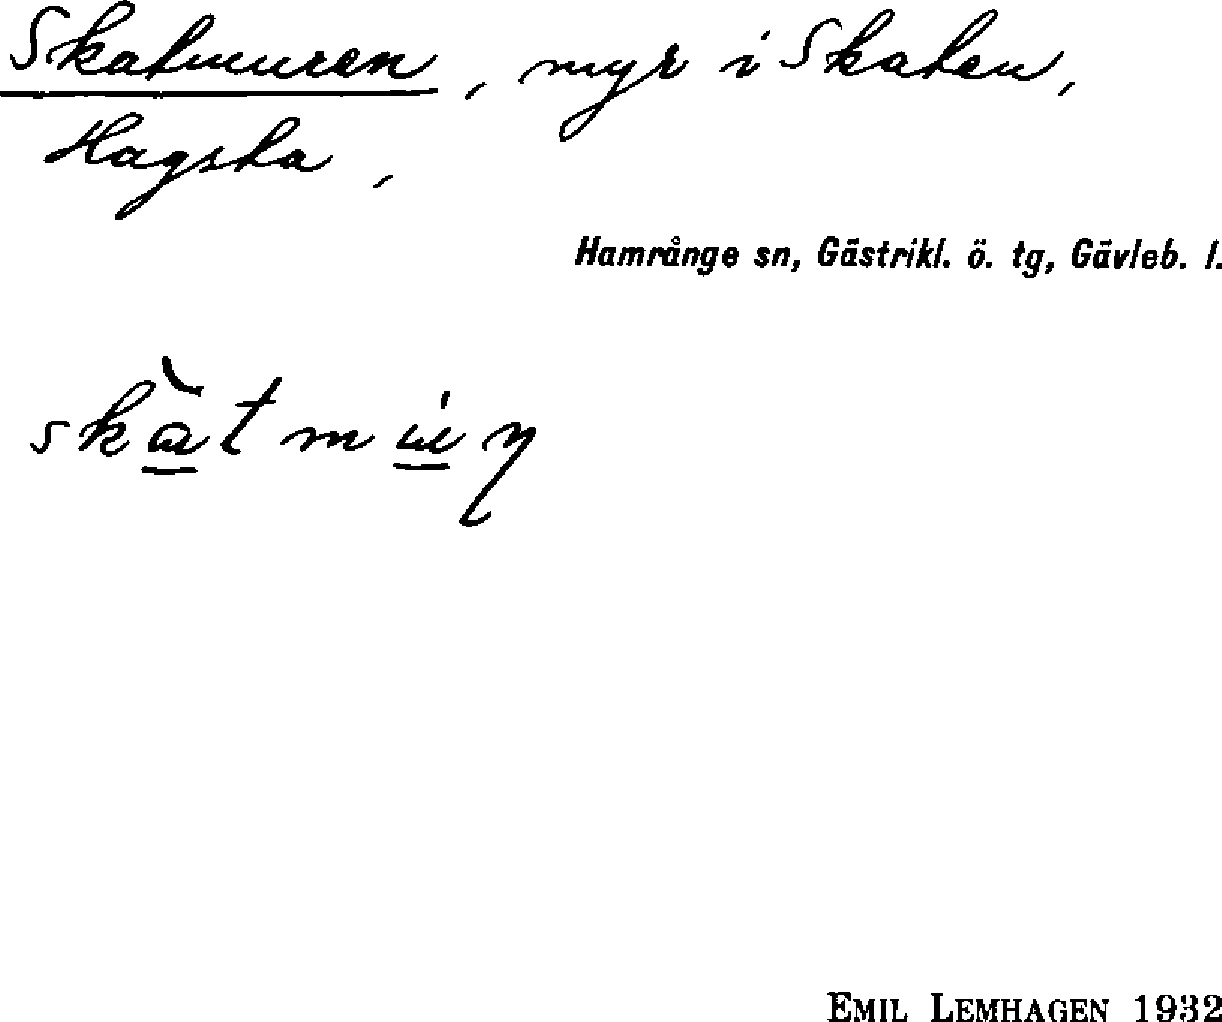 Skatmuren, myr i Skaten,
Hagsta,
Hamrånge sn, Gästrikl. ö. tg, Gävleb. l.
EMIL LEMHAGEN 1932